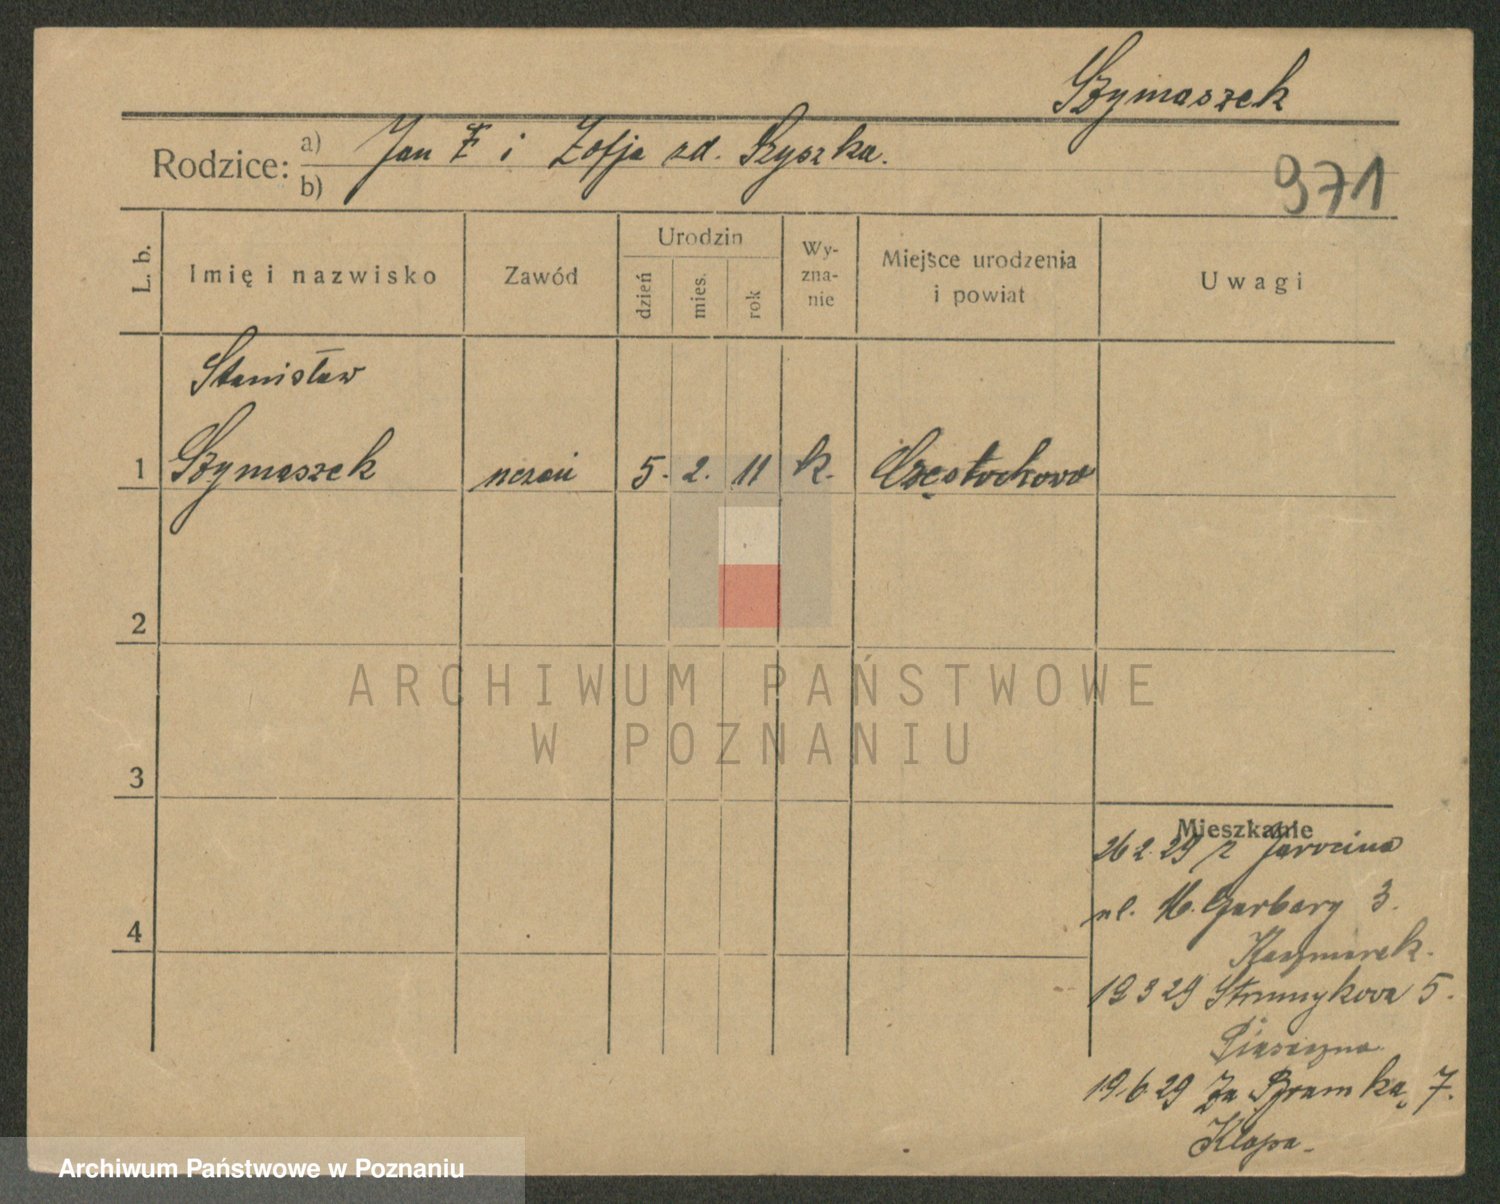 Szymaszek
Rodzice: a) Jan i Zofja zd. Szyszka.
b)
971
L. b.
Imię i nazwisko
Zawód
Urodzin
dzień
mies.
rok
Wy-
zna-
nie
Miejsce urodzenia
i powiat
Uwagi
Stanisław
1 Szymaszek uczeń 5. 2. 11 k. Częstochowa
2
ARCHIWUM PAŃSTWOWE
W POZNANIU
3
Mieszkanie
26 2. 29 z Jarocina
4
ul. W. Garbary 3.
Kaczmarek.
19 3 29 Strumykowa 5.
19.6.29 Za Bramką 7.
Klapa.
Archiwum Państwowe w Poznaniu